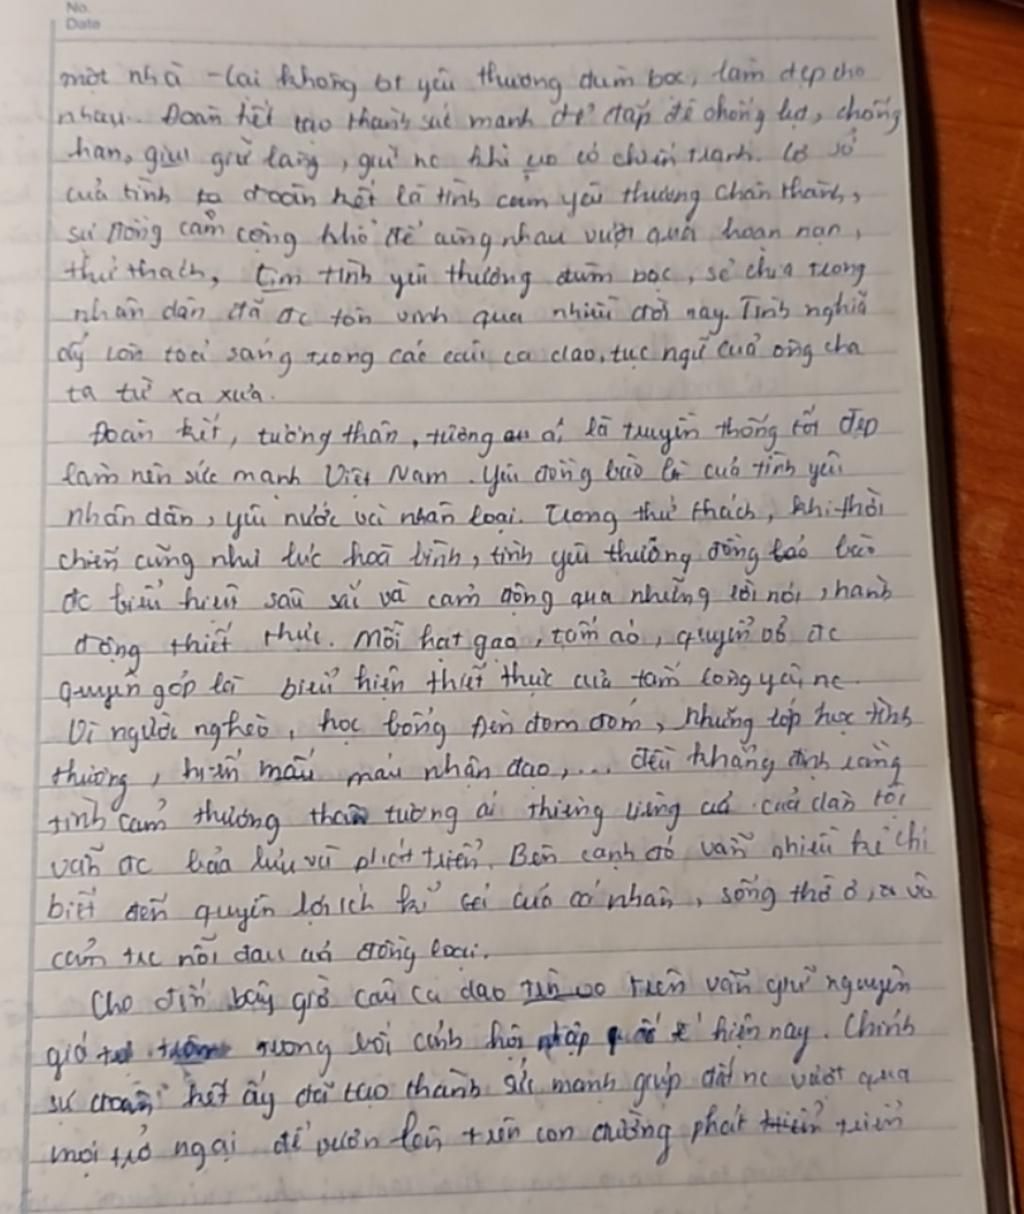 No.
Date
một nhà - lại không bt yêu thương đùm bọc, làm đẹp cho
nhau. Đoàn kết tạo thành sức mạnh để đắp đê chống lụt, chống
hạn, giữ làng, giữ nc khi có chiến tranh. Cơ sở
của tình đoàn kết là tình cảm yêu thương chân thành,
sự đồng cam cộng khổ để cùng nhau vượt qua hoạn nạn,
thử thách, tình yêu thương đùm bọc, sẻ chia trong
nhân dân đã đc tôn vinh qua nhiều đời nay. Tình nghĩa
ấy còn toả sáng trong các câu ca dao, tục ngữ của ông cha
ta từ xa xưa.
Đoàn kết, tương thân, tương ái là truyền thống tốt đẹp
làm nên sức mạnh Việt Nam. Yêu đồng bào là của tình yêu
nhân dân, yêu nước và nhân loại. Trong thử thách, khi thời
chiến cũng như lúc hoà bình, tình yêu thương đồng bào
đc biểu hiện sâu sắc và cảm động qua những lời nói, hành
động thiết thực. Mỗi hạt gạo, tấm áo, quyển vở đc
quyên góp là biểu hiện thiết thực của tấm lòng yêu nc.
Vì người nghèo, học bổng Đèn đom đóm, những lớp học tình
thương, hiến máu nhân đạo,... đều khẳng định rằng
tình cảm thương thân tương ái thiêng liêng của dân tộc
vẫn đc bảo lưu và phát triển. Bên cạnh đó vẫn nhiều kẻ chỉ
biết đến quyền lợi ích kỉ của cá nhân, sống thờ ơ, vô
cảm trc nỗi đau của đồng loại.
Cho đến bây giờ câu ca dao trên vẫn giữ nguyên
giá trong bối cảnh hội nhập quốc tế hiện nay. Chính
sự đoàn kết ấy đã tạo thành sức mạnh giúp đất nc vượt qua
mọi trở ngại để vươn lên trên con đường phát triển